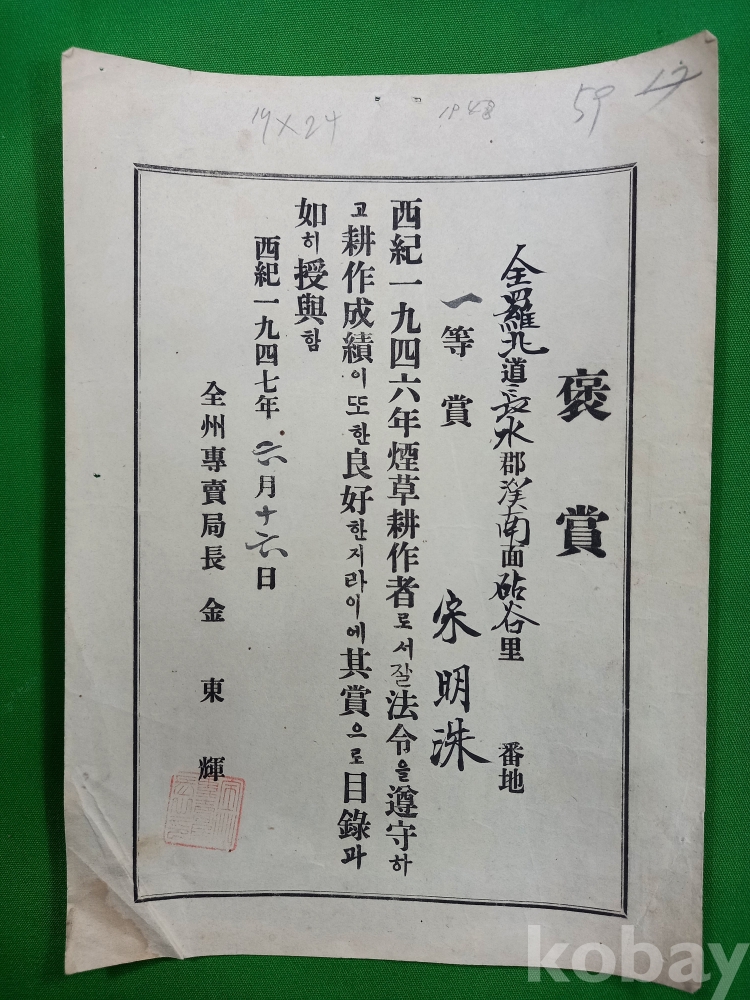 褒賞
全羅北道長水郡溪南面砧谷里 番地
一等賞 宋明洙
西紀一九四六年煙草耕作者로서잘法令을遵守하
고耕作成績이또한良好한지라이에其賞으로目錄과
如히授與함
西紀一九四七年六月十六日
全州專賣局長 金東輝
19×24
1948
59
17
kobay